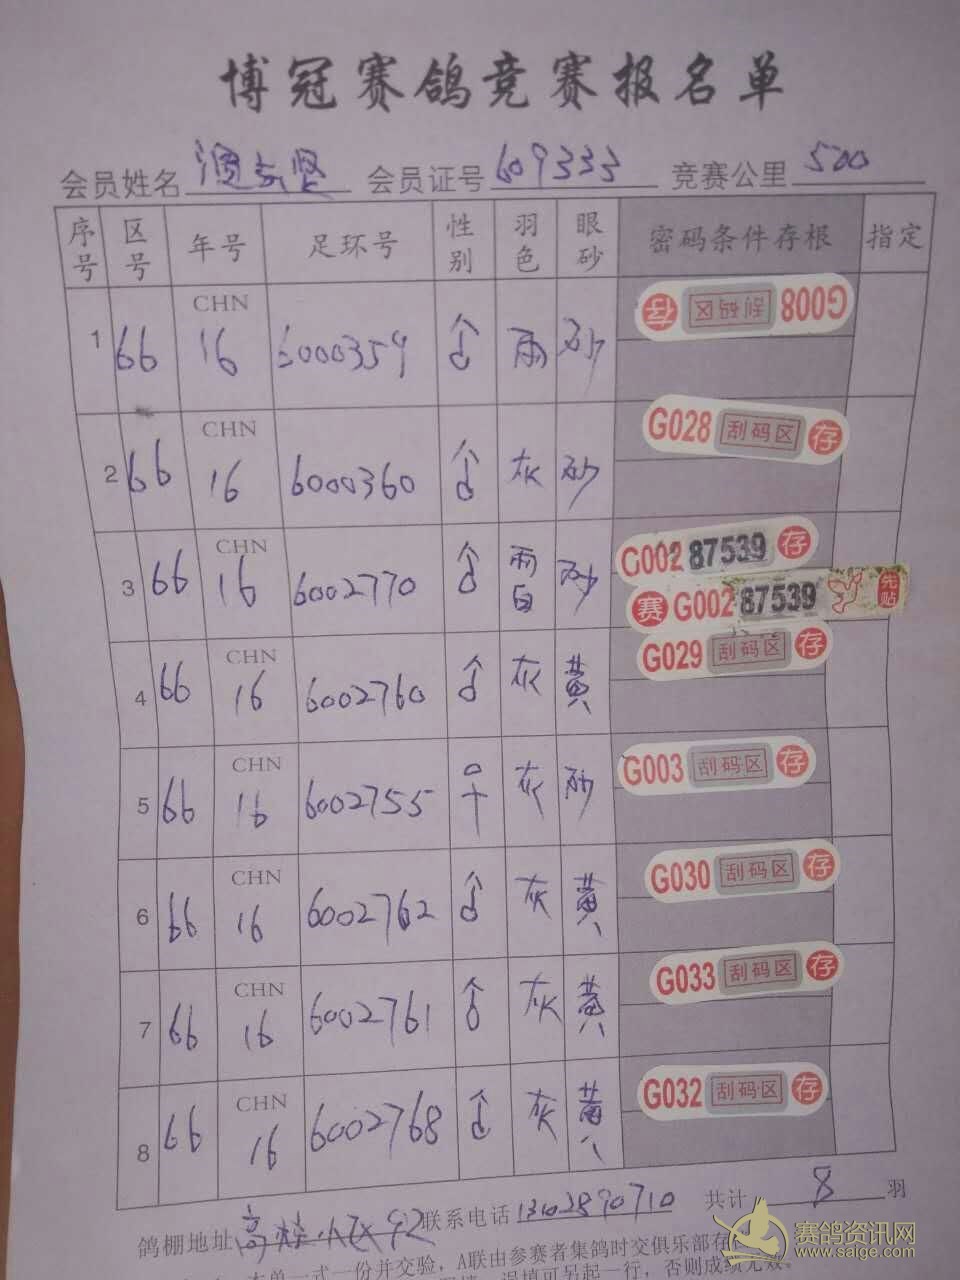 博冠赛鸽竞赛报名单
会员姓名 会员证号 609333 竞赛公里 500
序号 区号 年号 足环号 性别 羽色 眼砂 密码条件存根 指定
1 66 CHN 16 6000359 ♂ 雨 砂 G008 刮码区 存
2 66 CHN 16 6000360 ♂ 灰 砂 G028 刮码区 存
3 66 CHN 16 6002770 ♂ 雨白 砂 G002 87539 存
赛 G002 87539 先贴
4 66 CHN 16 6002760 ♂ 灰 黄 G029 刮码区 存
5 66 CHN 16 6002755 ♀ 灰 砂 G003 刮码区 存
6 66 CHN 16 6002762 ♂ 灰 黄 G030 刮码区 存
7 66 CHN 16 6002761 ♂ 灰 黄 G033 刮码区 存
8 66 CHN 16 6002768 ♂ 灰 黄 G032 刮码区 存
鸽棚地址 联系电话 1302890710 共计 8 羽
本单一式一份并交验，A联由参赛者集鸽时交俱乐部存
误填可另起一行，否则成绩无效。
赛鸽资讯网
www.saige.com